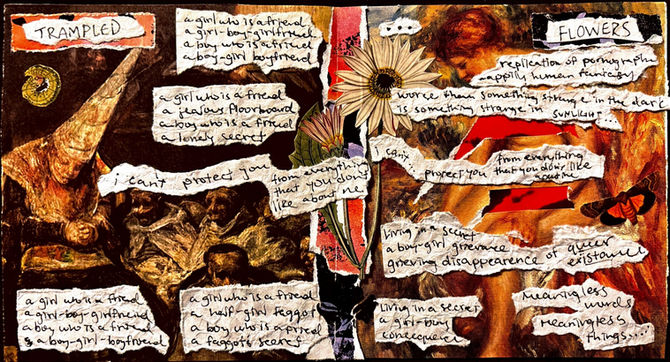 TRAMPLED
a girl who is a friend
a girl-boy-girlfriend
a boy who is a friend
a boy-girl boyfriend
a girl who is a friend
a jealous floorboard
a boy who is a friend
a lonely secret
i can't protect you from everything
that you don't
like about me
a girl who is a friend
a girl-boy-girlfriend
a boy who is a friend
& a boy-girl-boyfriend
a girl who is a friend
a half-girl faggot
a boy who is a friend
a faggot's secret
...
FLOWERS
replication of pornography
appily human
worse than something strange in the dark
is something strange in SUNLIGHT...
i can't
protect you from everything
that you don't like
about me
Living in a secret
a boy-girl grievance
grieving disappearence of queer
existance
Living in a secret
a girl-boys
consequence
Meaningless
words
Meaningless
things....